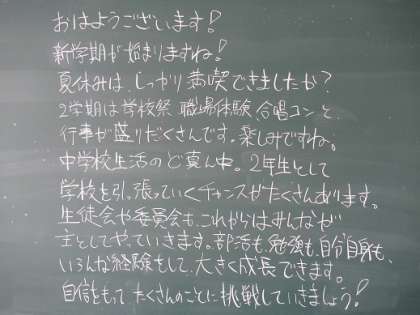 おはようございます!
新学期が始まりますね!
夏休みは、しっかり満喫できましたか?
2学期は学校祭 職場体験 合唱コンと、
行事が盛りだくさんです。楽しみですね。
中学校生活のど真ん中。2年生として
学校を引っ張っていくチャンスがたくさんあります。
生徒会や委員会も、これからはみんなが
主としてやっていきます。部活も勉強も、自分自身も、
いろんな経験をして、大きく成長できます。
自信をもって たくさんのことに挑戦していきましょう!